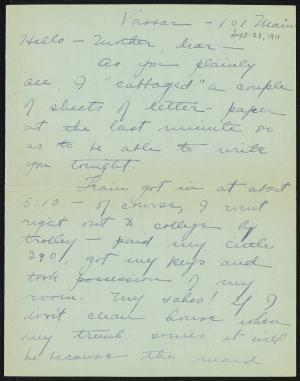 Vassar - 101 Main
Sept. 23, 1911
Hello - Mother, dear -
As you plainly
see, I "cabbaged" a couple
of sheets of letter-paper
at the last minute so
as to be able to write
you tonight.
Train got in at about
5:10 - of course, I went
right out to college by
trolley - paid my little
290, got my keys and
took possession of my
room. My sakes! If I
don't clean house when
my trunk comes it will
be because the maid